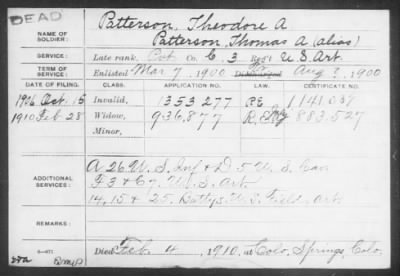 DEAD
NAME OF SOLDIER:
Patterson, Theodore A
Patterson, Thomas A (alias)
SERVICE:
Late rank, Pvt Co. C, 3 Reg't U.S. Art.
TERM OF SERVICE:
Enlisted Mar. 7, 1900 Discharged Aug 8, 1900
DATE OF FILING. CLASS. APPLICATION NO. LAW. CERTIFICATE NO.
1906 Oct. 15 Invalid, 1353277 P.E. 1141037
1910 Feb 28 Widow, 936,877 883,527
Minor,
ADDITIONAL SERVICES:
A 26 U. S. Inf & D. 5 U. S. Cav
F 3 & C 7, U. S. Art.
14, 15 & 25, Battys. U. S. Field Art.
REMARKS:
Died Feb. 4, 1910, at Colo. Springs, Colo.